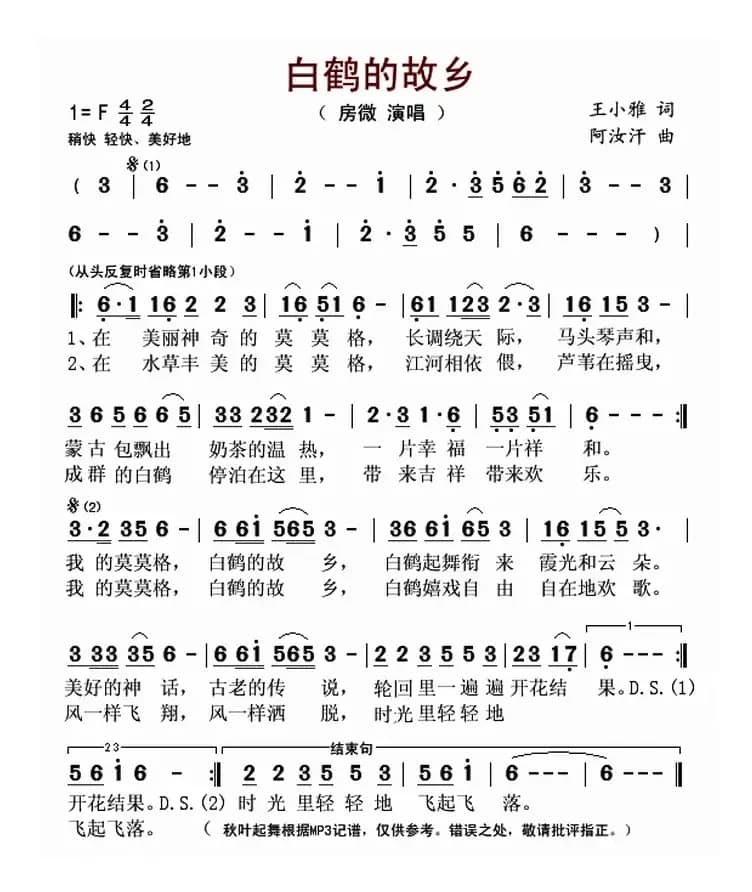 白鹤的故乡
1=F 4/4 2/4
（ 房微 演唱 ）
王小雅 词
稍快 轻快、美好地
阿汝汗 曲
𝄋(1)
( 3 | 6 - - 3̇ | 2̇ - - 1̇ | 2̇ · 3̇ 5̇ 6̇ 2̇ | 3̇ - - 3 |
6 - - 3̇ | 2̇ - - 1̇ | 2̇ · 3̇ 5 5 | 6 - - - ) |
(从头反复时省略第1小段)
‖: 6̣ · 1 1 6̣ 2 2 3 | 1 6̣ 5̣ 1 6̣ - | 6̣ 1 1 2 3 2 · 3 | 1 6̣ 1 2 3 - |
1、在 美丽神 奇的 莫 莫 格， 长调绕天 际， 马头琴声和，
2、在 水草丰 美的 莫 莫 格， 江河相依 偎， 芦苇在摇曳，
3 6 5 6 6 5 | 3 3 2 3 2 1 - | 2 · 3 1 · 6̣ | 5̣ 3̣ 5̣ 1 | 6̣ - - - :‖
蒙古 包飘出 奶茶的温 热， 一 片幸 福 一片祥 和。
成群 的白鹤 停泊在这 里， 带 来吉 祥 带来欢 乐。
𝄋(2)
3 · 2 3 5 6 - | 6 6 1̇ 5 6 5 3 - | 3 6 6 1̇ 6 5 3 | 1 6̣ 1 5 5 3 · |
我 的莫莫格， 白鹤的故 乡， 白鹤起舞衔 来 霞光和云 朵。
我 的莫莫格， 白鹤的故 乡， 白鹤嬉戏自 由 自在地欢 歌。
1
3 3 3 3 5 6 - | 6 6 1̇ 5 6 5 3 - | 2 2 3 5 5 3 | 2 3 1 7̣ | 6̣ - - - :‖
美好的神 话， 古老的传 说， 轮回里一遍 遍 开花结 果。D.S.(1)
风一样飞 翔， 风一样洒 脱， 时光里轻轻地
2 3
结束句
5 6 1̇ 6 - :‖ 2 2 3 5 5 3 | 5 6 1̇ | 6 - - - | 6 - - - ‖
开花结果。D.S.(2) 时 光 里轻 轻 地 飞起飞 落。
飞起飞落。 （ 秋叶起舞根据MP3记谱，仅供参考。错误之处，敬请批评指正。）